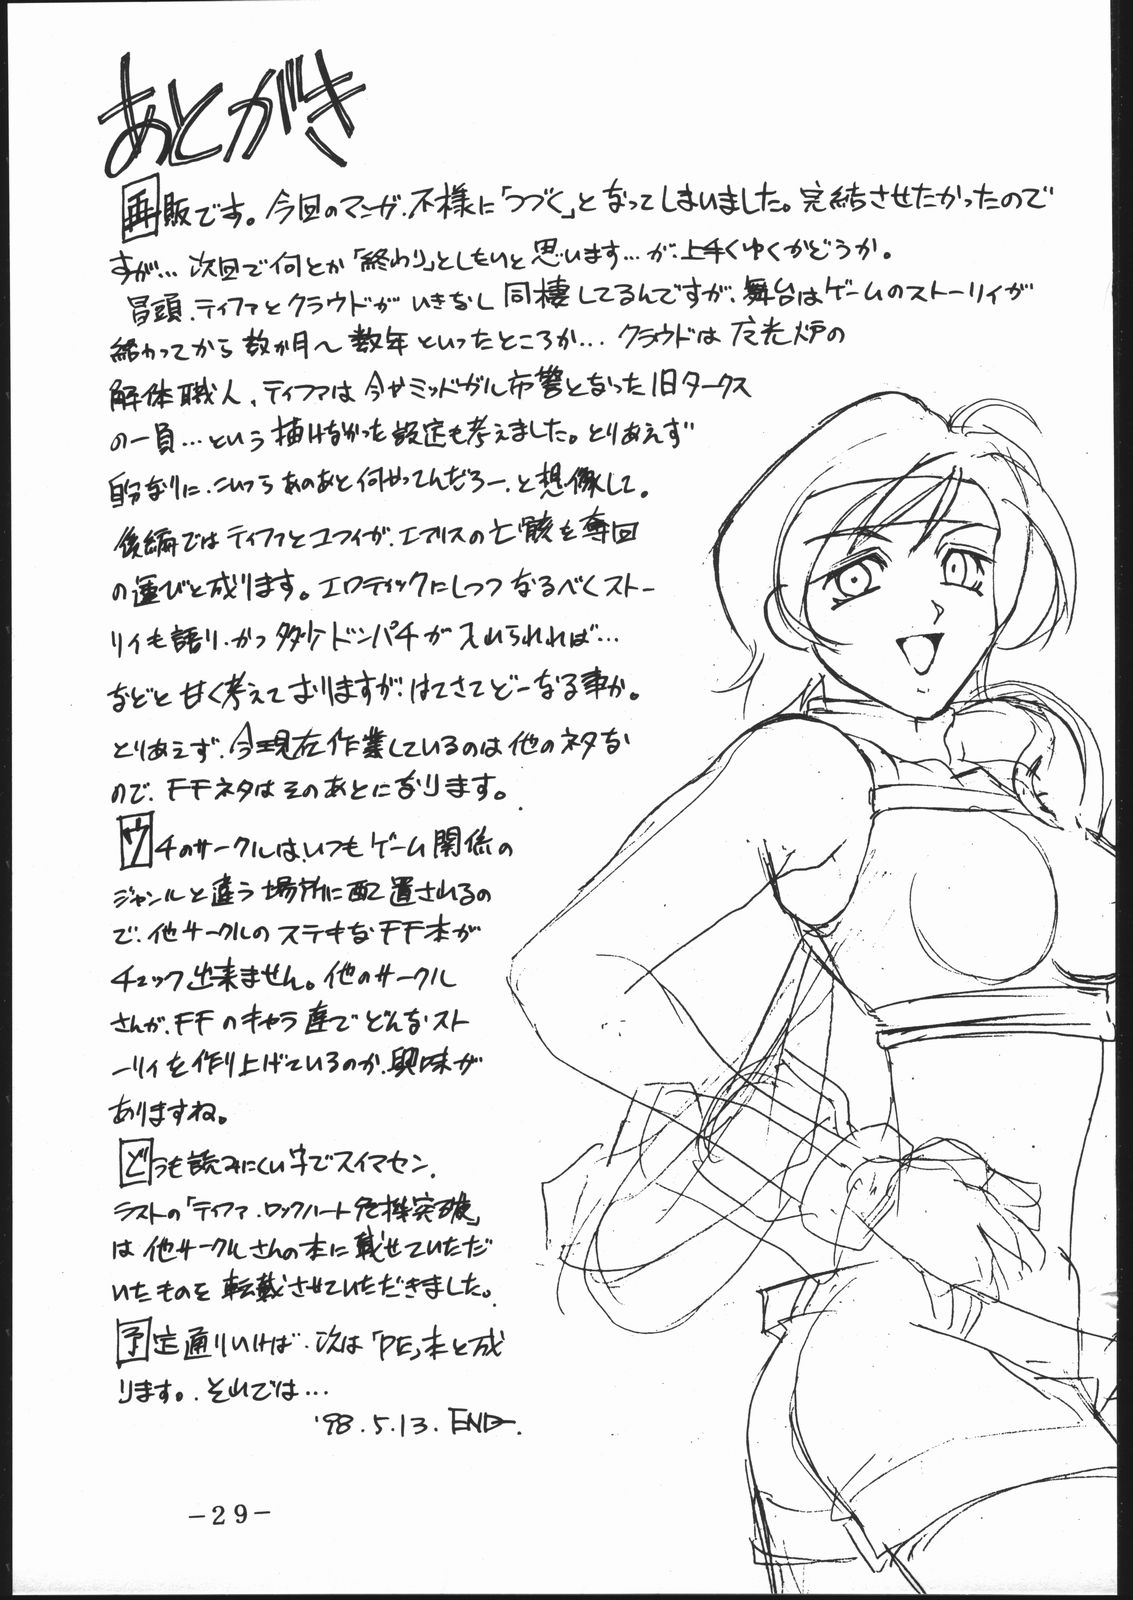 あとがき
再販です。今回のマンガ、不様に「つづく」となってしまいました。完結させたかったので
すが…次回で何とか「終わり」としたいと思います…が、上手くゆくかどうか。
冒頭、ティファとクラウドがいきなし同棲してるんですが、舞台はゲームのストーリィが
終わってから数か月〜数年といったところか… クラウドは魔晄炉の
解体職人、ティファは今やミッドガル市警となった旧タークス
の一員…という描けなかった設定も考えました。とりあえず
自分なりに、こいつらあのあと何やってんだろー、と想像して。
後編ではティファとユフィが、エアリスの亡骸を奪回
の運びと成ります。エロティックにしつつなるべくストー
リィも語り、かつ多少ドンパチが入れられれば…
などと甘く考えておりますが、はてさてどーなる事か。
とりあえず、今現在作業しているのは他のネタな
ので、FFネタはそのあとになります。
ウチのサークルは、いつもゲーム関係の
ジャンルと違う場所に配置されるの
で、他サークルのステキなFF本が
チェック出来ません。他のサークル
さんが、FFのキャラ達でどんなスト
ーリィを作り上げているのか、興味が
ありますね。
どうも読みにくい字でスイマセン。
ラストの「ティファ・ロックハート危機突破」
は他サークルさんの本に載せていただ
いたものを転載させていただきました。
予定通りいけば、次は「PE」本と成
ります。それでは…
'98.5.13. END
-29-